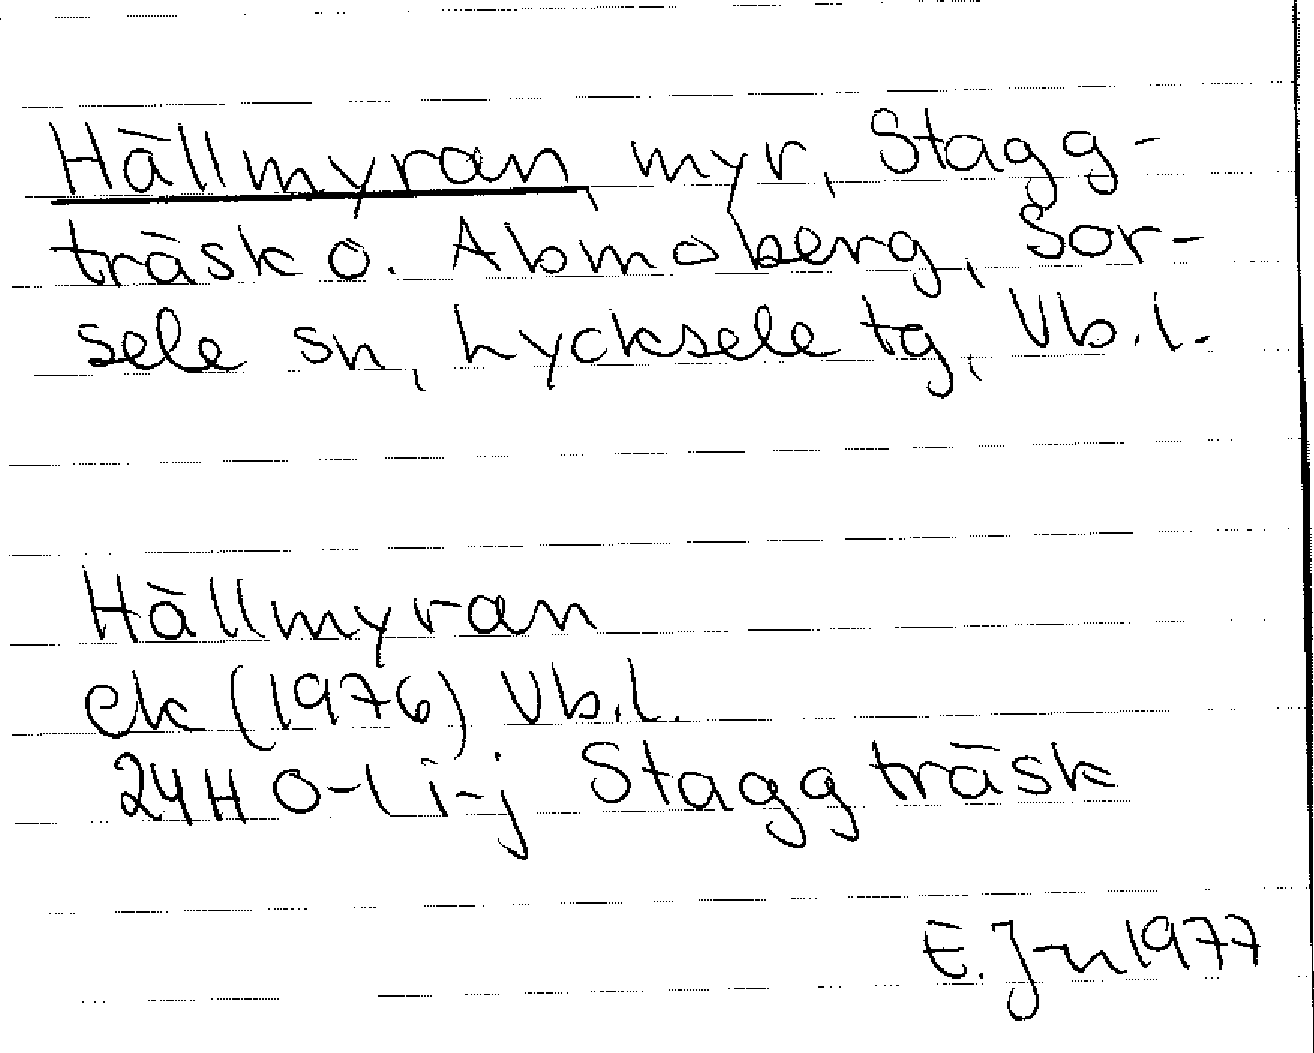 Hällmyran, myr, Stagg-
träsk o. Abmoberg, Sor-
sele sn, Lycksele tg, Vb.l.
Hällmyran
ek (1976) Vb.l.
24H 0-1 i-j Staggträsk
E. J-n 1977